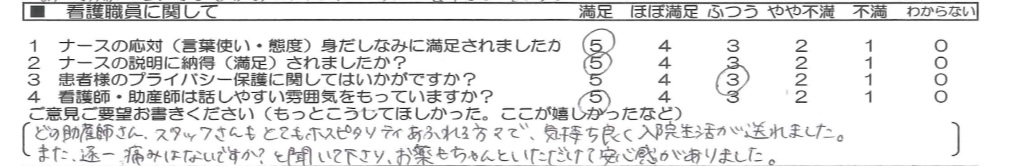 ■ 看護職員に関して 満足 ほぼ満足 ふつう やや不満 不満 わからない
1 ナースの応対（言葉使い・態度）身だしなみに満足されましたか 5 4 3 2 1 0
2 ナースの説明に納得（満足）されましたか？ 5 4 3 2 1 0
3 患者様のプライバシー保護に関してはいかがですか？ 5 4 3 2 1 0
4 看護師・助産師は話しやすい雰囲気をもっていますか？ 5 4 3 2 1 0
ご意見ご要望お書きください（もっとこうしてほしかった。ここが嬉しかったなど）
どの助産師さん、スタッフさんもとてもホスピタリティあふれる方々で、気持ち良く入院生活が送れました。
また、逐一痛みはないですか？と聞いて下さり、お薬もちゃんといただけて安心感がありました。